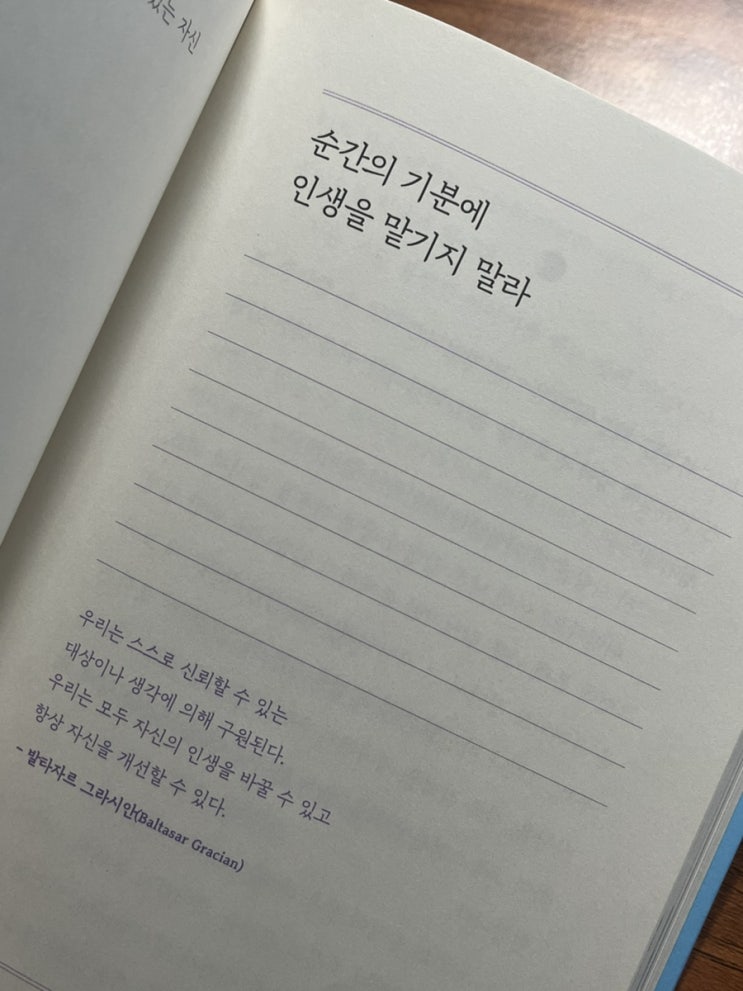 있는 자신
순간의 기분에
인생을 맡기지 말라
우리는 스스로 신뢰할 수 있는
대상이나 생각에 의해 구원된다.
우리는 모두 자신의 인생을 바꿀 수 있고
항상 자신을 개선할 수 있다.
- 발타자르 그라시안(Baltasar Gracian)